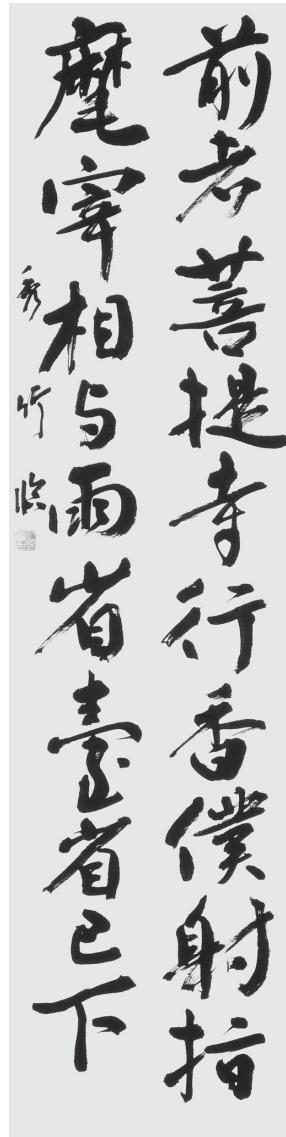 前者菩提寺行香僕射指
麾宰相与兩省臺省已下
秀竹臨